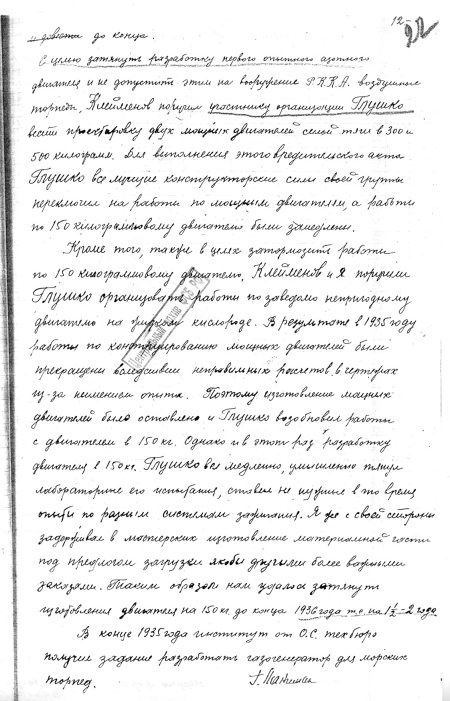 12-
22
и довели до конца.
С целью затянуть разработку первого опытного азотного
двигателя и не допустить этим на вооружение Р.К.К.А. воздушные
торпеды, Клейменов поручил участнику организации Глушко
вести проектировку двух мощных двигателей силой тяги в 300 и
500 килограмм. Для выполнения этого вредительского акта
Глушко все лучшие конструкторские силы своей группы
переключил на работы по мощным двигателям, а работы
по 150 килограммовому двигателю были замедлены.
Кроме того, также в целях затормозить работы
по 150 килограммовому двигателю, Клейменов и я поручили
Глушко организовать работы по заведомо непригодному
двигателю на жидком кислороде. В результате в 1935 году
работы по конструированию мощных двигателей были
прекращены вследствии неправильных расчетов, в чертежах
из-за неимением опыта. Поэтому изготовление мощных
двигателей было оставлено и Глушко возобновил работы
с двигателем в 150 кг. Однако и в этот раз разработку
двигателя в 150 кг. Глушко вел медленно, умышленно тянул
лабораторные его испытания, ставил не нужные в то время
опыты по разным системам зажигания. Я же с своей стороны
задерживал в мастерских изготовление материальной части
под предлогом загрузки якобы другими более важными
заказами. Таким образом нам удалось затянуть
изготовления двигателя на 150 кг. до конца 1936 года т.е. на 1½-2 года.
В конце 1935 года институт от О.С. техбюро
получил задание разработать газогенератор для морских
торпед.
Г. Лангемак
Центральный архив ФСБ РФ